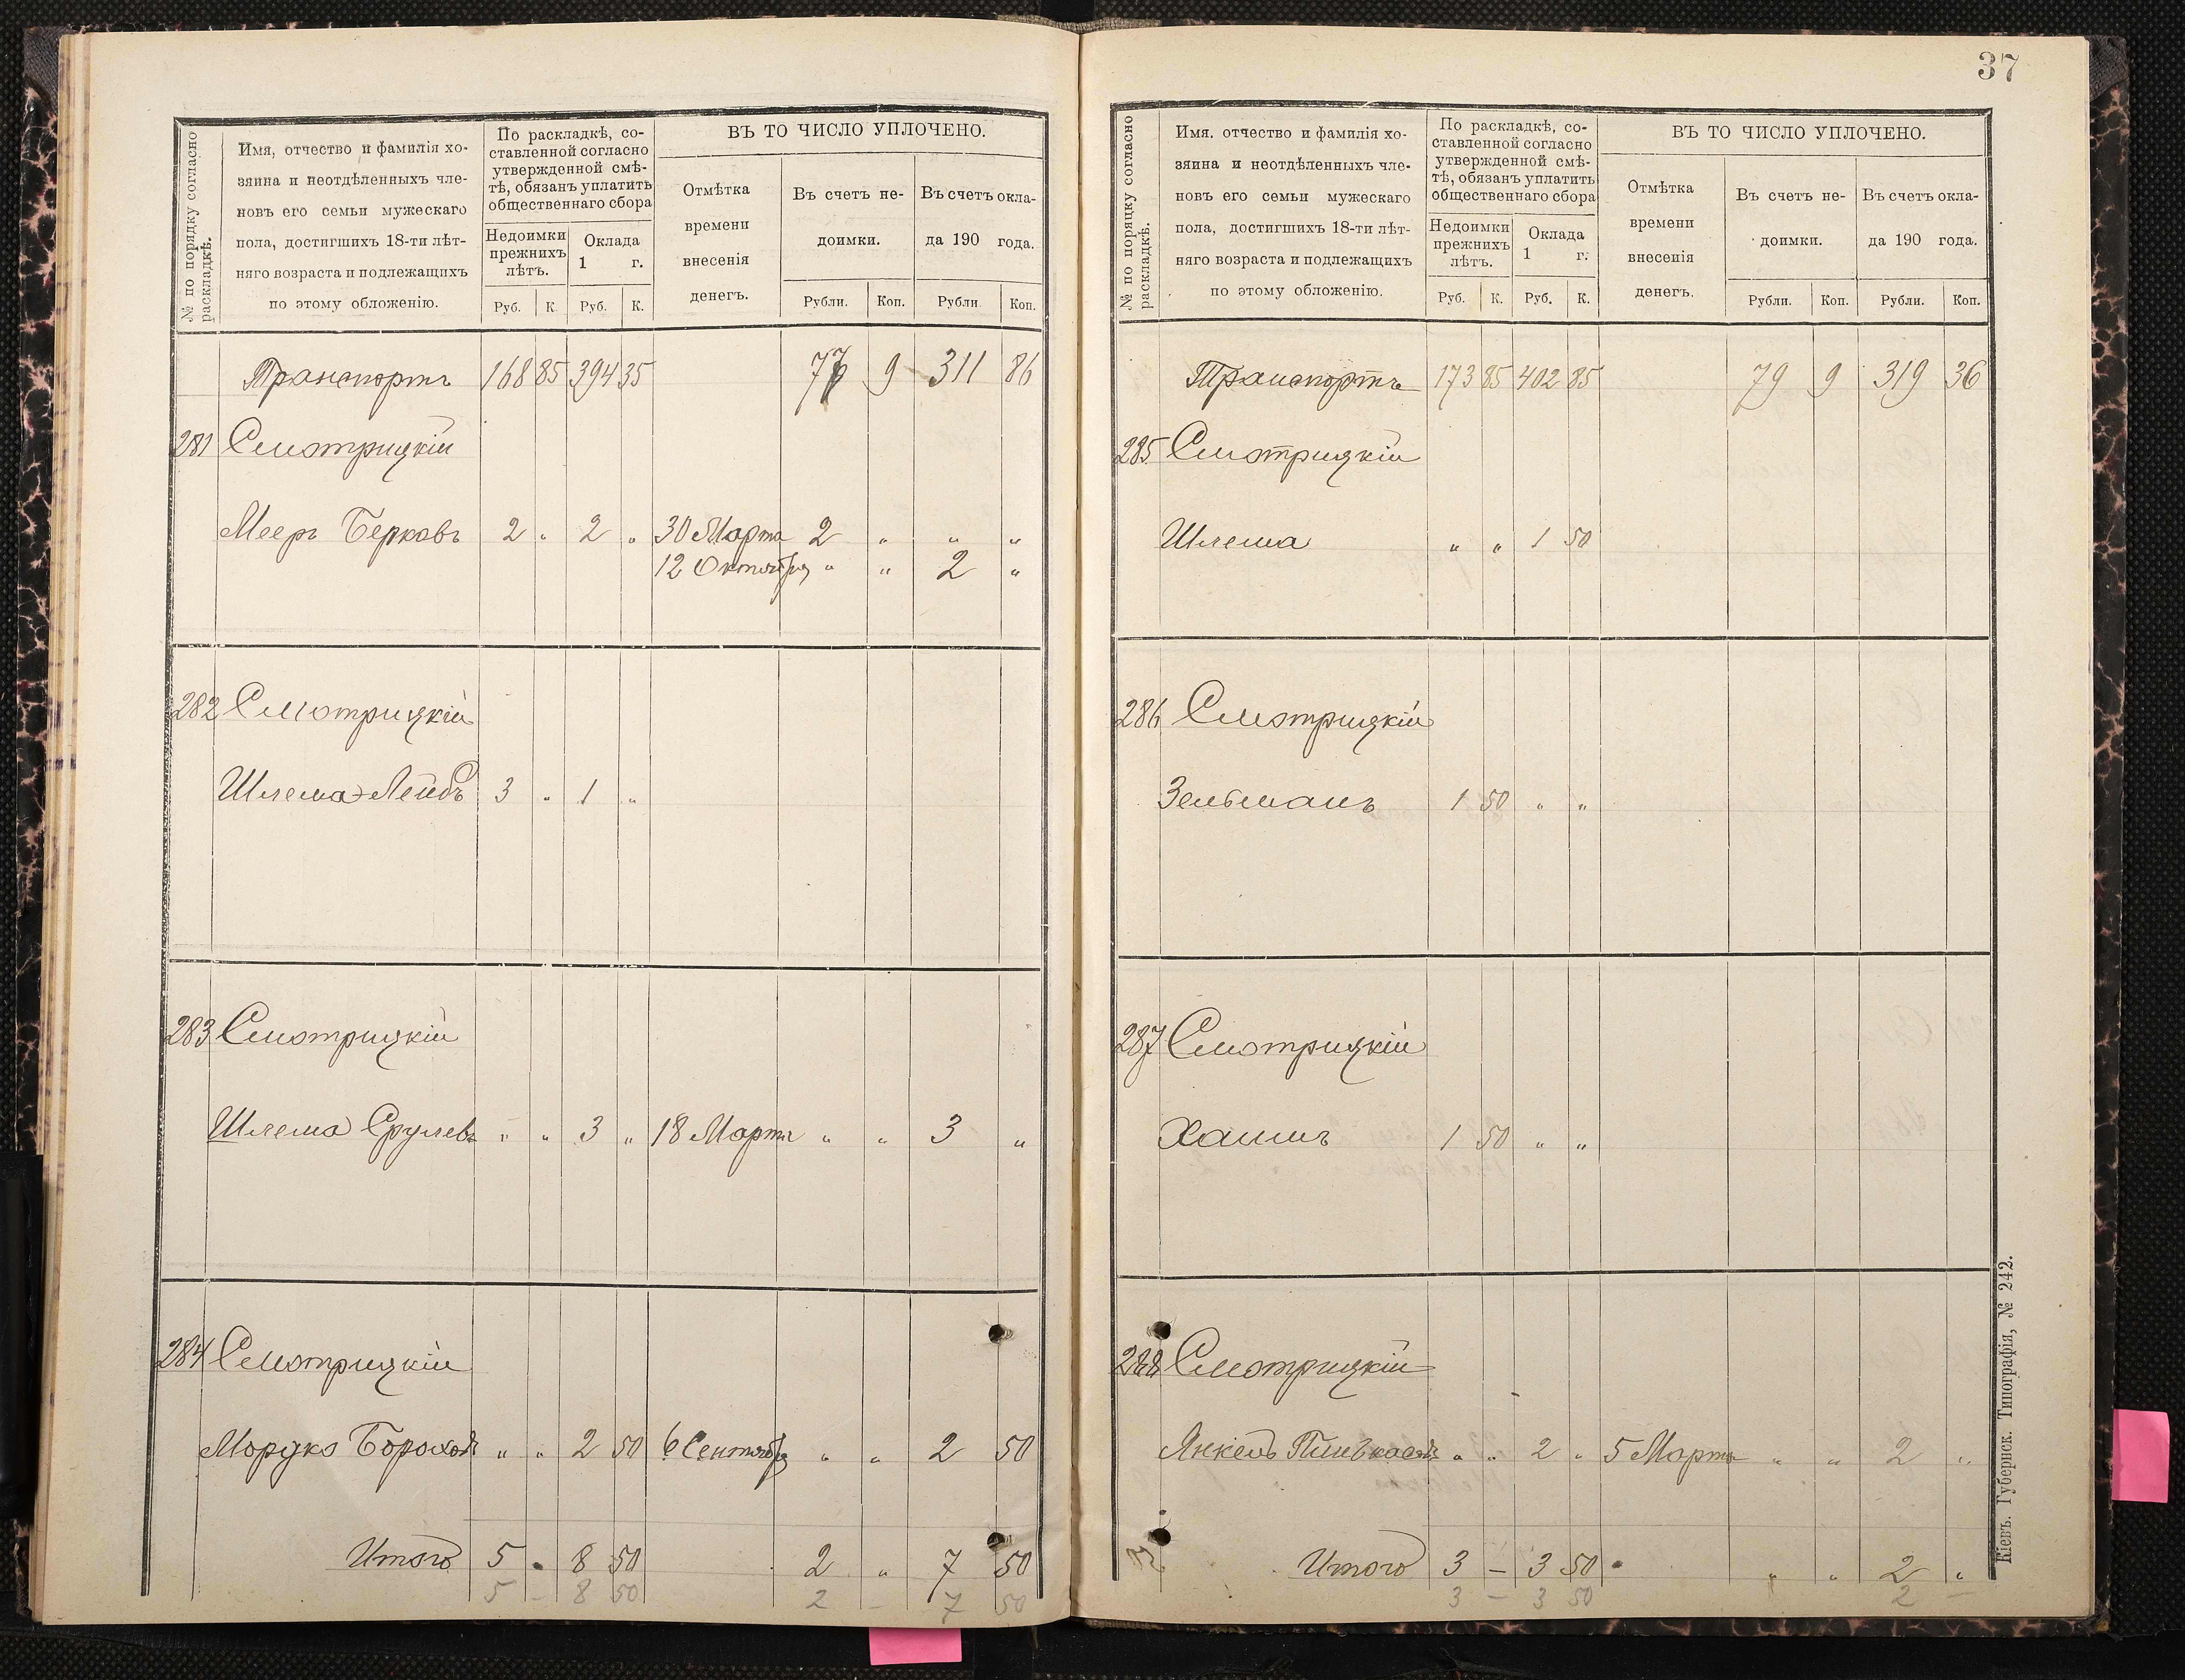 37
№ по порядку согласно раскладкѣ.
Имя, отчество и фамилія хо-
зяина и неотдѣленныхъ чле-
новъ его семьи мужескаго
пола, достигшихъ 18-ти лѣт-
няго возраста и подлежащихъ
по этому обложенію.
По раскладкѣ, со-
ставленной согласно
утвержденной смѣ-
тѣ, обязанъ уплатить
общественнаго сбора
Недоимки прежнихъ лѣтъ.
Оклада 1 г.
Руб. К. Руб. К.
ВЪ ТО ЧИСЛО УПЛОЧЕНО.
Отмѣтка
времени
внесенія
денегъ.
Въ счетъ не-
доимки.
Въ счетъ окла-
да 190 года.
Рубли. Коп. Рубли Коп.
Транспортъ 168 85 394 35 77 9 311 86
281 Смотрицкій
Мееръ Берковъ 2 „ 2 „ 30 Марта 2 „ „ „
12 Октября „ „ 2 „
282 Смотрицкій
Шлема-Лейбъ 3 „ 1 „
283 Смотрицкій
Шлема Срулевъ „ „ 3 „ 18 Марта „ „ 3 „
284 Смотрицкій
Мордко Бороховъ „ „ 2 50 6 Сентября „ „ 2 50
Итого 5 „ 8 50 2 „ 7 50
5 – 8 50 2 – 7 50
№ по порядку согласно раскладкѣ.
Имя. отчество и фамилія хо-
зяина и неотдѣленныхъ чле-
новъ его семьи мужескаго
пола, достигшихъ 18-ти лѣт-
няго возраста и подлежащихъ
по этому обложенію.
По раскладкѣ, со-
ставленной согласно
утвержденной смѣ-
тѣ, обязанъ уплатить
общественнаго сбора
Недоимки прежнихъ лѣтъ.
Оклада 1 г.
Руб. К. Руб. К.
ВЪ ТО ЧИСЛО УПЛОЧЕНО.
Отмѣтка
времени
внесенія
денегъ.
Въ счетъ не-
доимки.
Въ счетъ окла-
да 190 года.
Рубли. Коп. Рубли. Коп.
Транспортъ 173 85 402 85 79 9 319 36
285 Смотрицкій
Шлема „ „ 1 50
286 Смотрицкій
Зельманъ 1 50 „ „
287 Смотрицкій
Хаимъ 1 50 „ „
288 Смотрицкій
Янкель Пинькасовъ „ „ 2 „ 5 Марта „ „ 2 „
Итого 3 – 3 50 „ „ 2 „
3 – 3 50 2 –
Кіевъ. Губернск. Типографія, № 242.